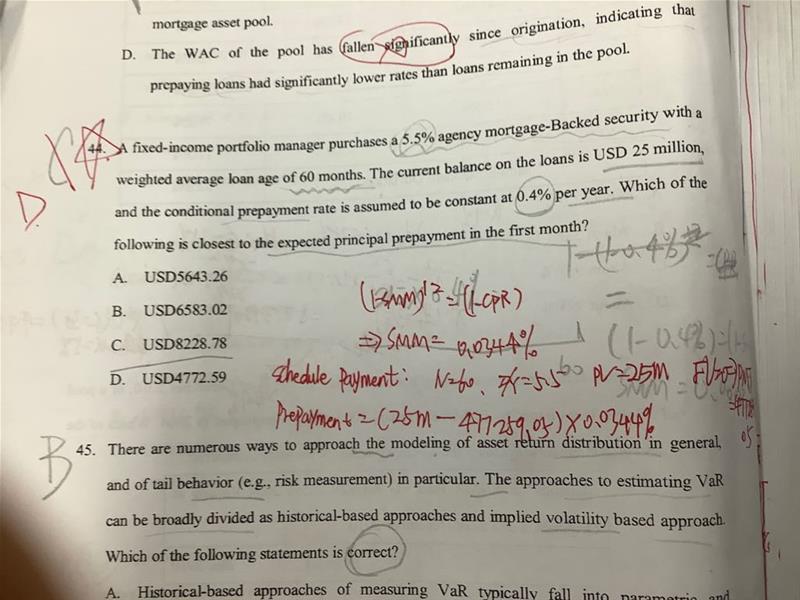 mortgage asset pool.
D. The WAC of the pool has fallen significantly since origination, indicating that
prepaying loans had significantly lower rates than loans remaining in the pool.
44. A fixed-income portfolio manager purchases a 5.5% agency mortgage-Backed security with a
D.
weighted average loan age of 60 months. The current balance on the loans is USD 25 million,
and the conditional prepayment rate is assumed to be constant at 0.4% per year. Which of the
following is closest to the expected principal prepayment in the first month?
1-(1-0.4%)
A. USD5643.26
(1-SMM)12=(1-CPR)
=
B. USD6583.02
⇒ SMM= 0.0344%
(1-0.4%)=(1-
C. USD8228.78
SMM =
D. USD4772.59
Schedule Payment: N=60, =5.5 PV=25M FV=0
Prepayment=(25M-477259.05)×0.0344%
B
45. There are numerous ways to approach the modeling of asset return distribution in general,
and of tail behavior (e.g., risk measurement) in particular. The approaches to estimating VaR
can be broadly divided as historical-based approaches and implied volatility based approach.
Which of the following statements is correct?
A. Historical-based approaches of measuring VaR typically fall into parametric and